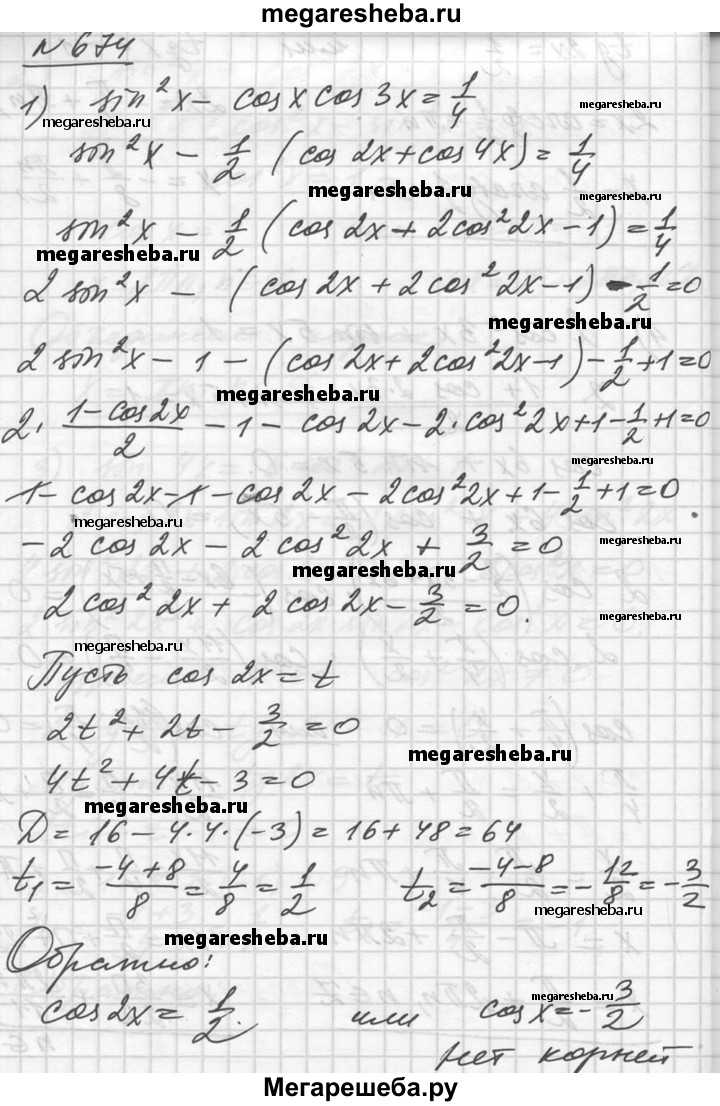 megaresheba.ru
N 674
1) sin²x - cosx cos 3x = 1/4
megaresheba.ru
megaresheba.ru
sin²x - 1/2 (cos 2x + cos 4x) = 1/4
megaresheba.ru
megaresheba.ru
sin²x - 1/2 (cos 2x + 2cos²2x - 1) = 1/4
megaresheba.ru
2 sin²x - (cos 2x + 2 cos²2x - 1) - 1/2 = 0
megaresheba.ru
2 sin²x - 1 - (cos 2x + 2cos²2x - 1) - 1/2 + 1 = 0
megaresheba.ru
2 · (1 - cos2x)/2 - 1 - cos 2x - 2·cos²2x + 1 - 1/2 + 1 = 0
megaresheba.ru
1 - cos 2x - 1 - cos 2x - 2cos²2x + 1 - 1/2 + 1 = 0.
megaresheba.ru
-2 cos 2x - 2 cos²2x + 3/2 = 0
megaresheba.ru
megaresheba.ru
2 cos²2x + 2 cos 2x - 3/2 = 0.
megaresheba.ru
megaresheba.ru
Пусть cos 2x = t
2t² + 2t - 3/2 = 0
megaresheba.ru
4t² + 4t - 3 = 0
megaresheba.ru
D = 16 - 4·4·(-3) = 16 + 48 = 64
t₁ = (-4+8)/8 = 4/8 = 1/2 t₂ = (-4-8)/8 = -12/8 = -3/2
megaresheba.ru
megaresheba.ru
Обратно:
cos2x = 1/2. или cosx = -3/2
megaresheba.ru
нет корней
Мегарешеба.ру